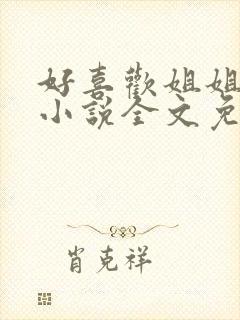 好喜歡姐姐
小說全文免
肖克祥